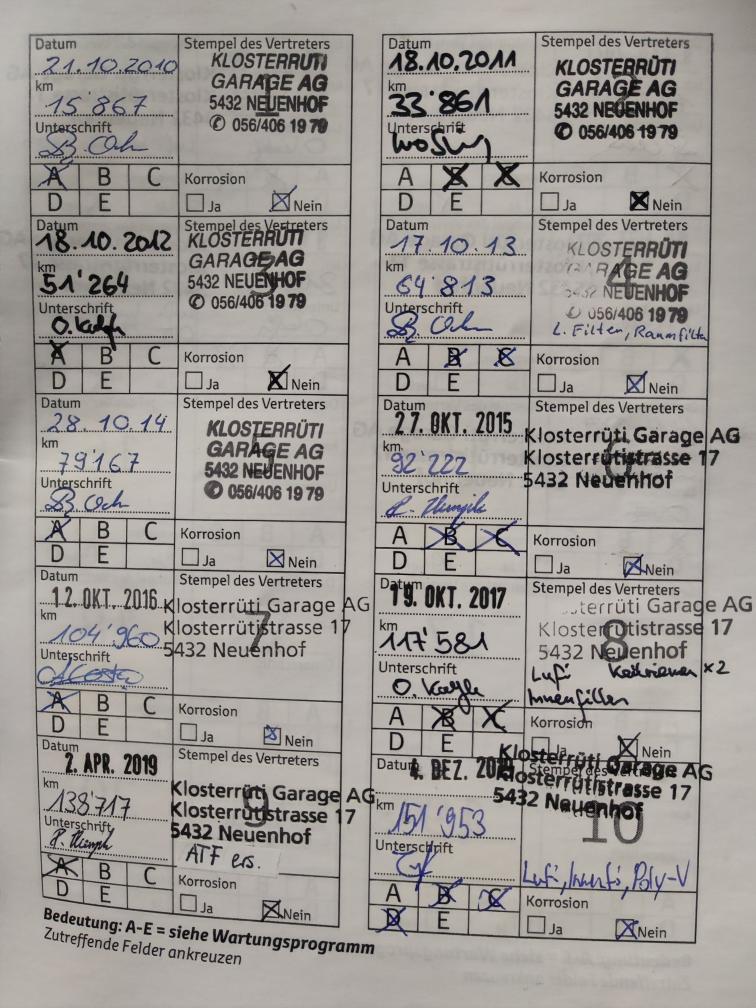 Datum
21.10.2010
km
15'867
Unterschrift
Stempel des Vertreters
1
KLOSTERRÜTI
GARAGE AG
5432 NEUENHOF
✆ 056/406 19 79
A B C
D E
Korrosion
Ja Nein
Datum
18.10.2011
km
33'861
Unterschrift
Stempel des Vertreters
2
KLOSTERRÜTI
GARAGE AG
5432 NEUENHOF
✆ 056/406 19 79
A B C
D E
Korrosion
Ja Nein
Datum
18.10.2012
km
51'264
Unterschrift
Stempel des Vertreters
3
KLOSTERRÜTI
GARAGE AG
5432 NEUENHOF
✆ 056/406 19 79
A B C
D E
Korrosion
Ja Nein
Datum
17.10.13
km
64'813
Unterschrift
Stempel des Vertreters
4
KLOSTERRÜTI
GARAGE AG
5432 NEUENHOF
✆ 056/406 19 79
L. Filter, Raumfilter
A B C
D E
Korrosion
Ja Nein
Datum
28.10.14
km
79'167
Unterschrift
Stempel des Vertreters
5
KLOSTERRÜTI
GARAGE AG
5432 NEUENHOF
✆ 056/406 19 79
A B C
D E
Korrosion
Ja Nein
Datum
27. OKT. 2015
km
92'222
Unterschrift
Stempel des Vertreters
6
Klosterrüti Garage AG
Klosterrütistrasse 17
5432 Neuenhof
A B C
D E
Korrosion
Ja Nein
Datum
12. OKT. 2016
km
104'960
Unterschrift
Stempel des Vertreters
7
Klosterrüti Garage AG
Klosterrütistrasse 17
5432 Neuenhof
A B C
D E
Korrosion
Ja Nein
Datum
19. OKT. 2017
km
117'581
Unterschrift
Stempel des Vertreters
8
Klosterrüti Garage AG
Klosterrütistrasse 17
5432 Neuenhof
Lufi Keilriemen x2
Innenfilter
A B C
D E
Korrosion
Ja Nein
Datum
2. APR. 2019
km
138'717
Unterschrift
Stempel des Vertreters
9
Klosterrüti Garage AG
Klosterrütistrasse 17
5432 Neuenhof
ATF ers.
A B C
D E
Korrosion
Ja Nein
Datum
4. DEZ.
km
151'953
Unterschrift
Stempel des Vertreters
10
Klosterrüti Garage AG
Klosterrütistrasse 17
5432 Neuenhof
Lufi, Innenfi, Poly-V
A B C
D E
Korrosion
Ja Nein
Bedeutung: A-E = siehe Wartungsprogramm
Zutreffende Felder ankreuzen